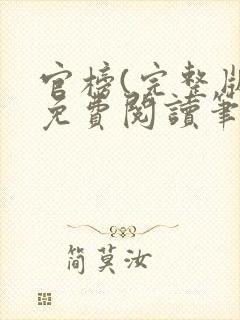 官榜(完整版
免費閱讀筆
簡莫汝